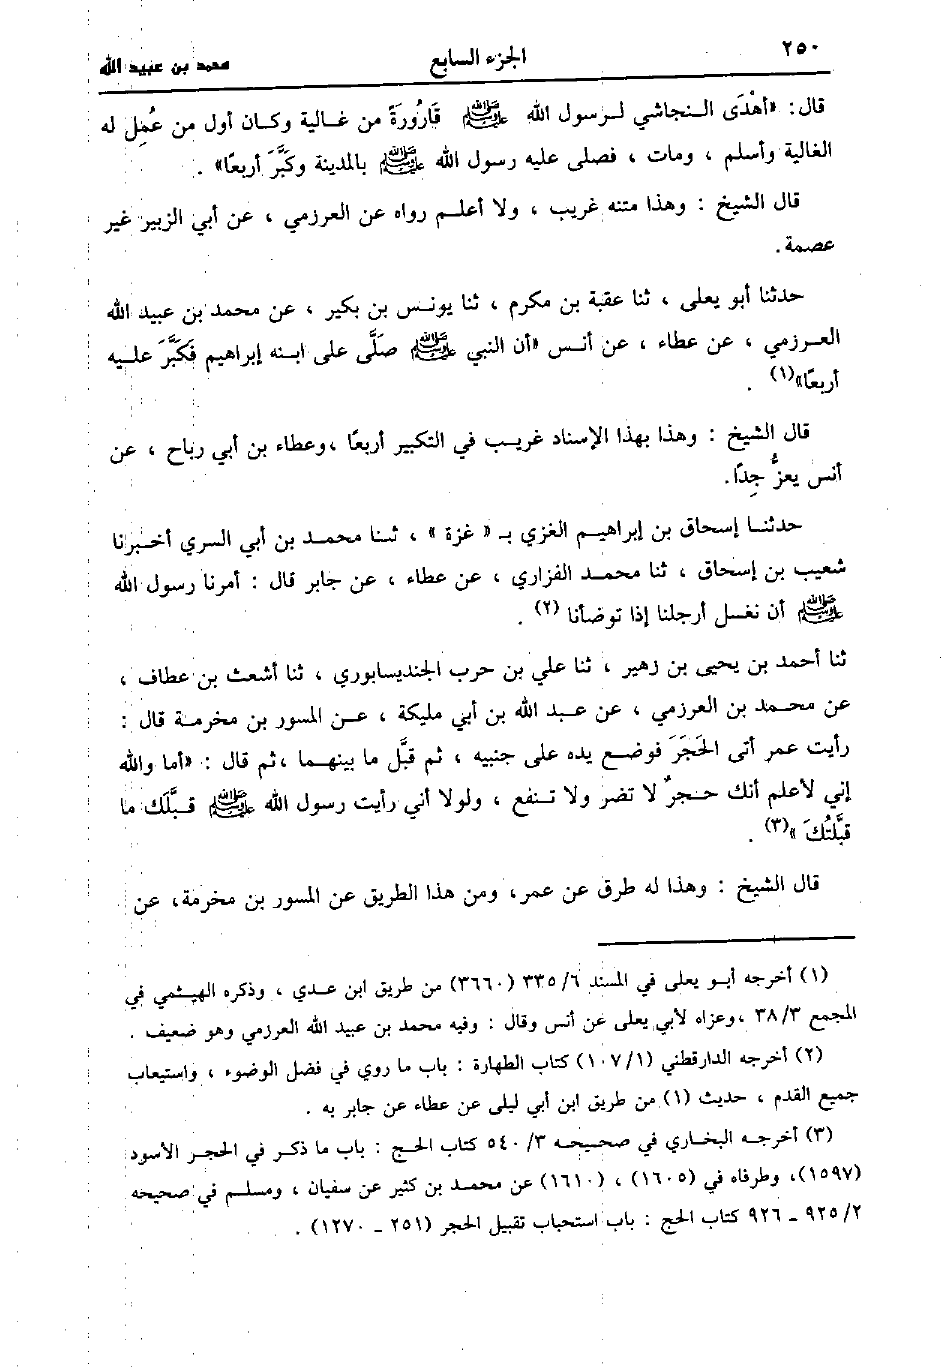 ٢٥٠
الجزء السابع
محمد بن عبيد الله
قال: «أهْدَى النجاشي لرسول الله ﷺ قَارُورَةً من غالية وكان أول من عُمِل له
الغالية وأسلم ، ومات ، فصلى عليه رسول الله ﷺ بالمدينة وكبَّرَ أربعًا» .
قال الشيخ : وهذا متنه غريب ، ولا أعلم رواه عن العرزمي ، عن أبي الزبير غير
عصمة.
حدثنا أبو يعلى ، ثنا عقبة بن مكرم ، ثنا يونس بن بكير ، عن محمد بن عبيد الله
العرزمي ، عن عطاء ، عن أنس «أن النبي ﷺ صَلَّى على ابنه إبراهيم فكَبَّرَ عليه
أربعًا»(١) .
قال الشيخ : وهذا بهذا الإسناد غريب في التكبير أربعًا ،وعطاء بن أبي رباح ، عن
أنس يعزُّ جِدًا.
حدثنا إسحاق بن إبراهيم الغزي بـ « غزة » ، ثنا محمد بن أبي السري أخبرنا
شعيب بن إسحاق ، ثنا محمد الفزاري ، عن عطاء ، عن جابر قال : أمرنا رسول الله
ﷺ أن نغسل أرجلنا إذا توضأنا (٢) .
ثنا أحمد بن يحيى بن زهير ، ثنا علي بن حرب الجنديسابوري ، ثنا أشعث بن عطاف ،
عن محمد بن العرزمي ، عن عبد الله بن أبي مليكة ، عن المسور بن مخرمة قال :
رأيت عمر أتى الحَجَرَ فوضع يده على جنبيه ، ثم قبَّل ما بينهما ،ثم قال : «أما والله
إني لأعلم أنك حجرٌ لا تضر ولا تنفع ، ولولا أني رأيت رسول الله ﷺ قبَّلَك ما
قبَّلتُكَ »(٣) .
قال الشيخ : وهذا له طرق عن عمر، ومن هذا الطريق عن المسور بن مخرمة، عن
(١) أخرجه أبو يعلى في المسند ٦/ ٣٣٥ (٣٦٦٠) من طريق ابن عدي ، وذكره الهيثمي في
المجمع ٣/ ٣٨ ،وعزاه لأبي يعلى عن أنس وقال : وفيه محمد بن عبيد الله العرزمي وهو ضعيف .
(٢) أخرجه الدارقطني (١/ ١٠٧) كتاب الطهارة : باب ما روي في فضل الوضوء ، واستيعاب
جميع القدم ، حديث (١) من طريق ابن أبي ليلى عن عطاء عن جابر به .
(٣) أخرجه البخاري في صحيحه ٣/ ٥٤٠ كتاب الحج : باب ما ذكر في الحجر الأسود
(١٥٩٧)، وطرفاه في (١٦٠٥) ، (١٦١٠) عن محمد بن كثير عن سفيان ، ومسلم في صحيحه
٢/ ٩٢٥ ـ ٩٢٦ كتاب الحج : باب استحباب تقبيل الحجر (٢٥١ ـ ١٢٧٠) .